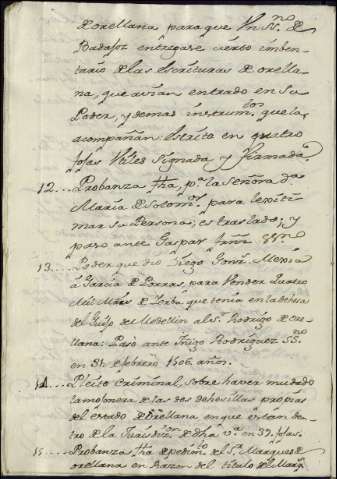 de orellana para que Vn SS.no de
Badajoz entregase cierto imben-
tario de las escrituras de orella-
na, que avian entrado en su
Poder, y demas instrum.tos que la
acompañan escrito en quatro
fojas Vtiles signada y firmada
12... Probanza fha, p.r la Señora da
Maria de Sotom.r para lexiti-
mar su Persona; es traslado; y
paso ante Gaspar
13... Poder que dió Diego Gonz. Mexia
á Garcia de Porras, para Vender quatro
Mill Mrs de Yerba que tenia en la dehesa
del Guijo de Medellin al Sr. Rodrigo de ore-
llana: Pasó ante Iñigo Rodriguez SS.no
en 21 de febrero 1506. años.
14... Pleito Criminal, sobre haver mudado
la mojonera de las dos dehesillas propias
del estado de Orellana en que estan den-
tro de la Jurisdic.on de dha V.a en 39. fojas.
15.. Probanza fha de pedim.to del Sr. Marques de
orellana en Razon del titulo de Marq.s